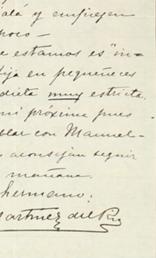 alá y empiecen
poco —
e estamos es "in-
fija en pequeñeces
dieta muy estricta.
mi próxima pues
blar con Manuel-
aconsejan seguir
mañana
hermano:
Martinez del Rio